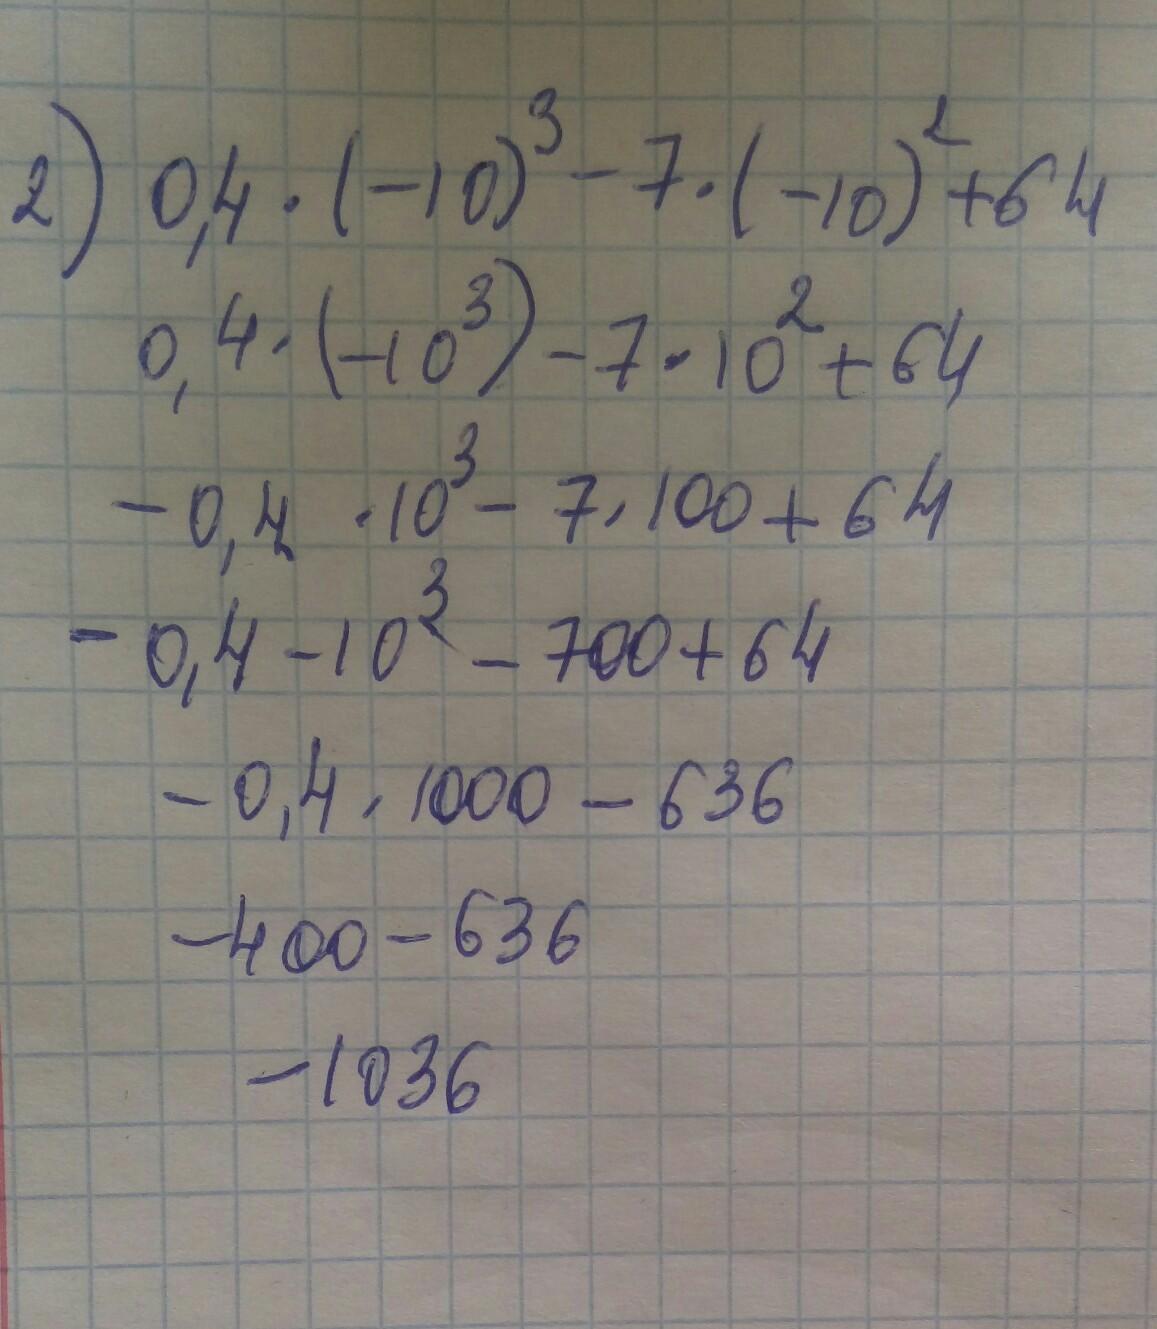 2) 0,4·(-10)³-7·(-10)²+64
0,4·(-10³)-7·10²+64
-0,4·10³-7·100+64
-0,4-10³-700+64
-0,4·1000-636
-400-636
-1036